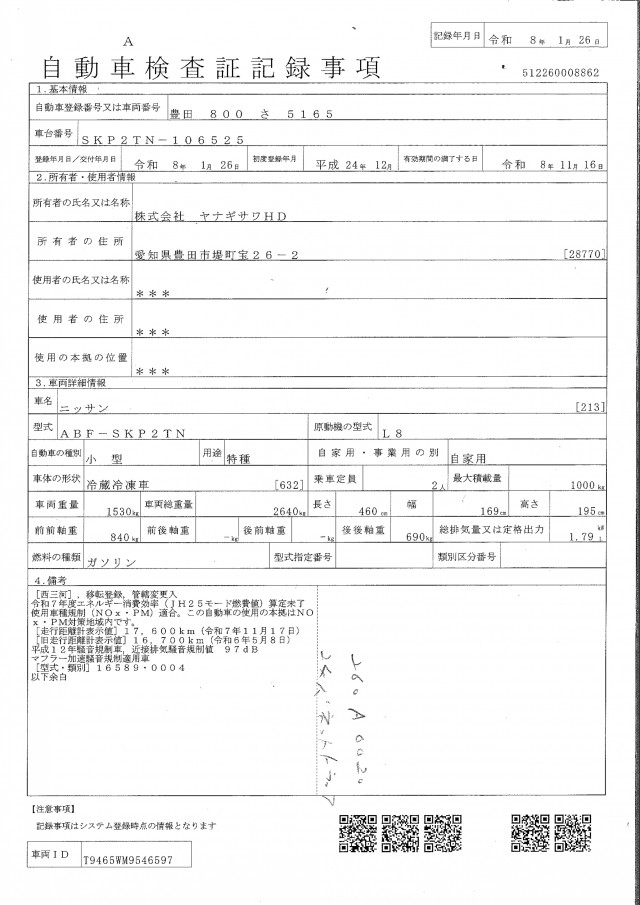 記録年月日 令和 8年 1月 26日
A
自動車検査証記録事項
512260008862
1.基本情報
自動車登録番号又は車両番号 豊田 800 さ 5165
車台番号 SKP2TN-106525
登録年月日/交付年月日 令和 8年 1月 26日 初度登録年月 平成 24年 12月 有効期間の満了する日 令和 8年 11月 16日
2.所有者・使用者情報
所有者の氏名又は名称 株式会社 ヤナギサワHD
所有者の住所 愛知県豊田市堤町宝26-2 [28770]
使用者の氏名又は名称 ***
使用者の住所 ***
使用の本拠の位置 ***
3.車両詳細情報
車名 ニッサン [213]
型式 ABF-SKP2TN 原動機の型式 L8
自動車の種別 小 型 用途 特種 自家用・事業用の別 自家用
車体の形状 冷蔵冷凍車 [632] 乗車定員 2人 最大積載量 1000kg
車両重量 1530kg 車両総重量 2640kg 長さ 460cm 幅 169cm 高さ 195cm
前前軸重 840kg 前後軸重 -kg 後前軸重 -kg 後後軸重 690kg 総排気量又は定格出力 1.79 kW L
燃料の種類 ガソリン 型式指定番号 類別区分番号
4.備考
[西三河],移転登録,管轄変更入
令和7年度エネルギー消費効率(JH25モード燃費値)算定未了
使用車種規制(NOx・PM)適合。この自動車の使用の本拠はNO
x・PM対策地域内です。
[走行距離計表示値]17,600km(令和7年11月17日)
[旧走行距離計表示値]16,700km(令和6年5月8日)
平成12年騒音規制車,近接排気騒音規制値 97dB
マフラー加速騒音規制適用車
[型式・類別]16589・0004
以下余白
260 A 0020
【注意事項】
記録事項はシステム登録時点の情報となります
車両ID T9465WM9546597